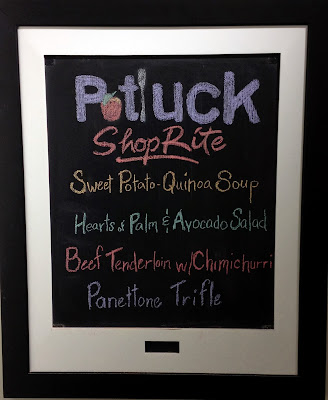 Potluck
ShopRite
Sweet Potato-Quinoa Soup
Hearts of Palm & Avocado Salad
Beef Tenderloin w/Chimichurri
Panettone Trifle